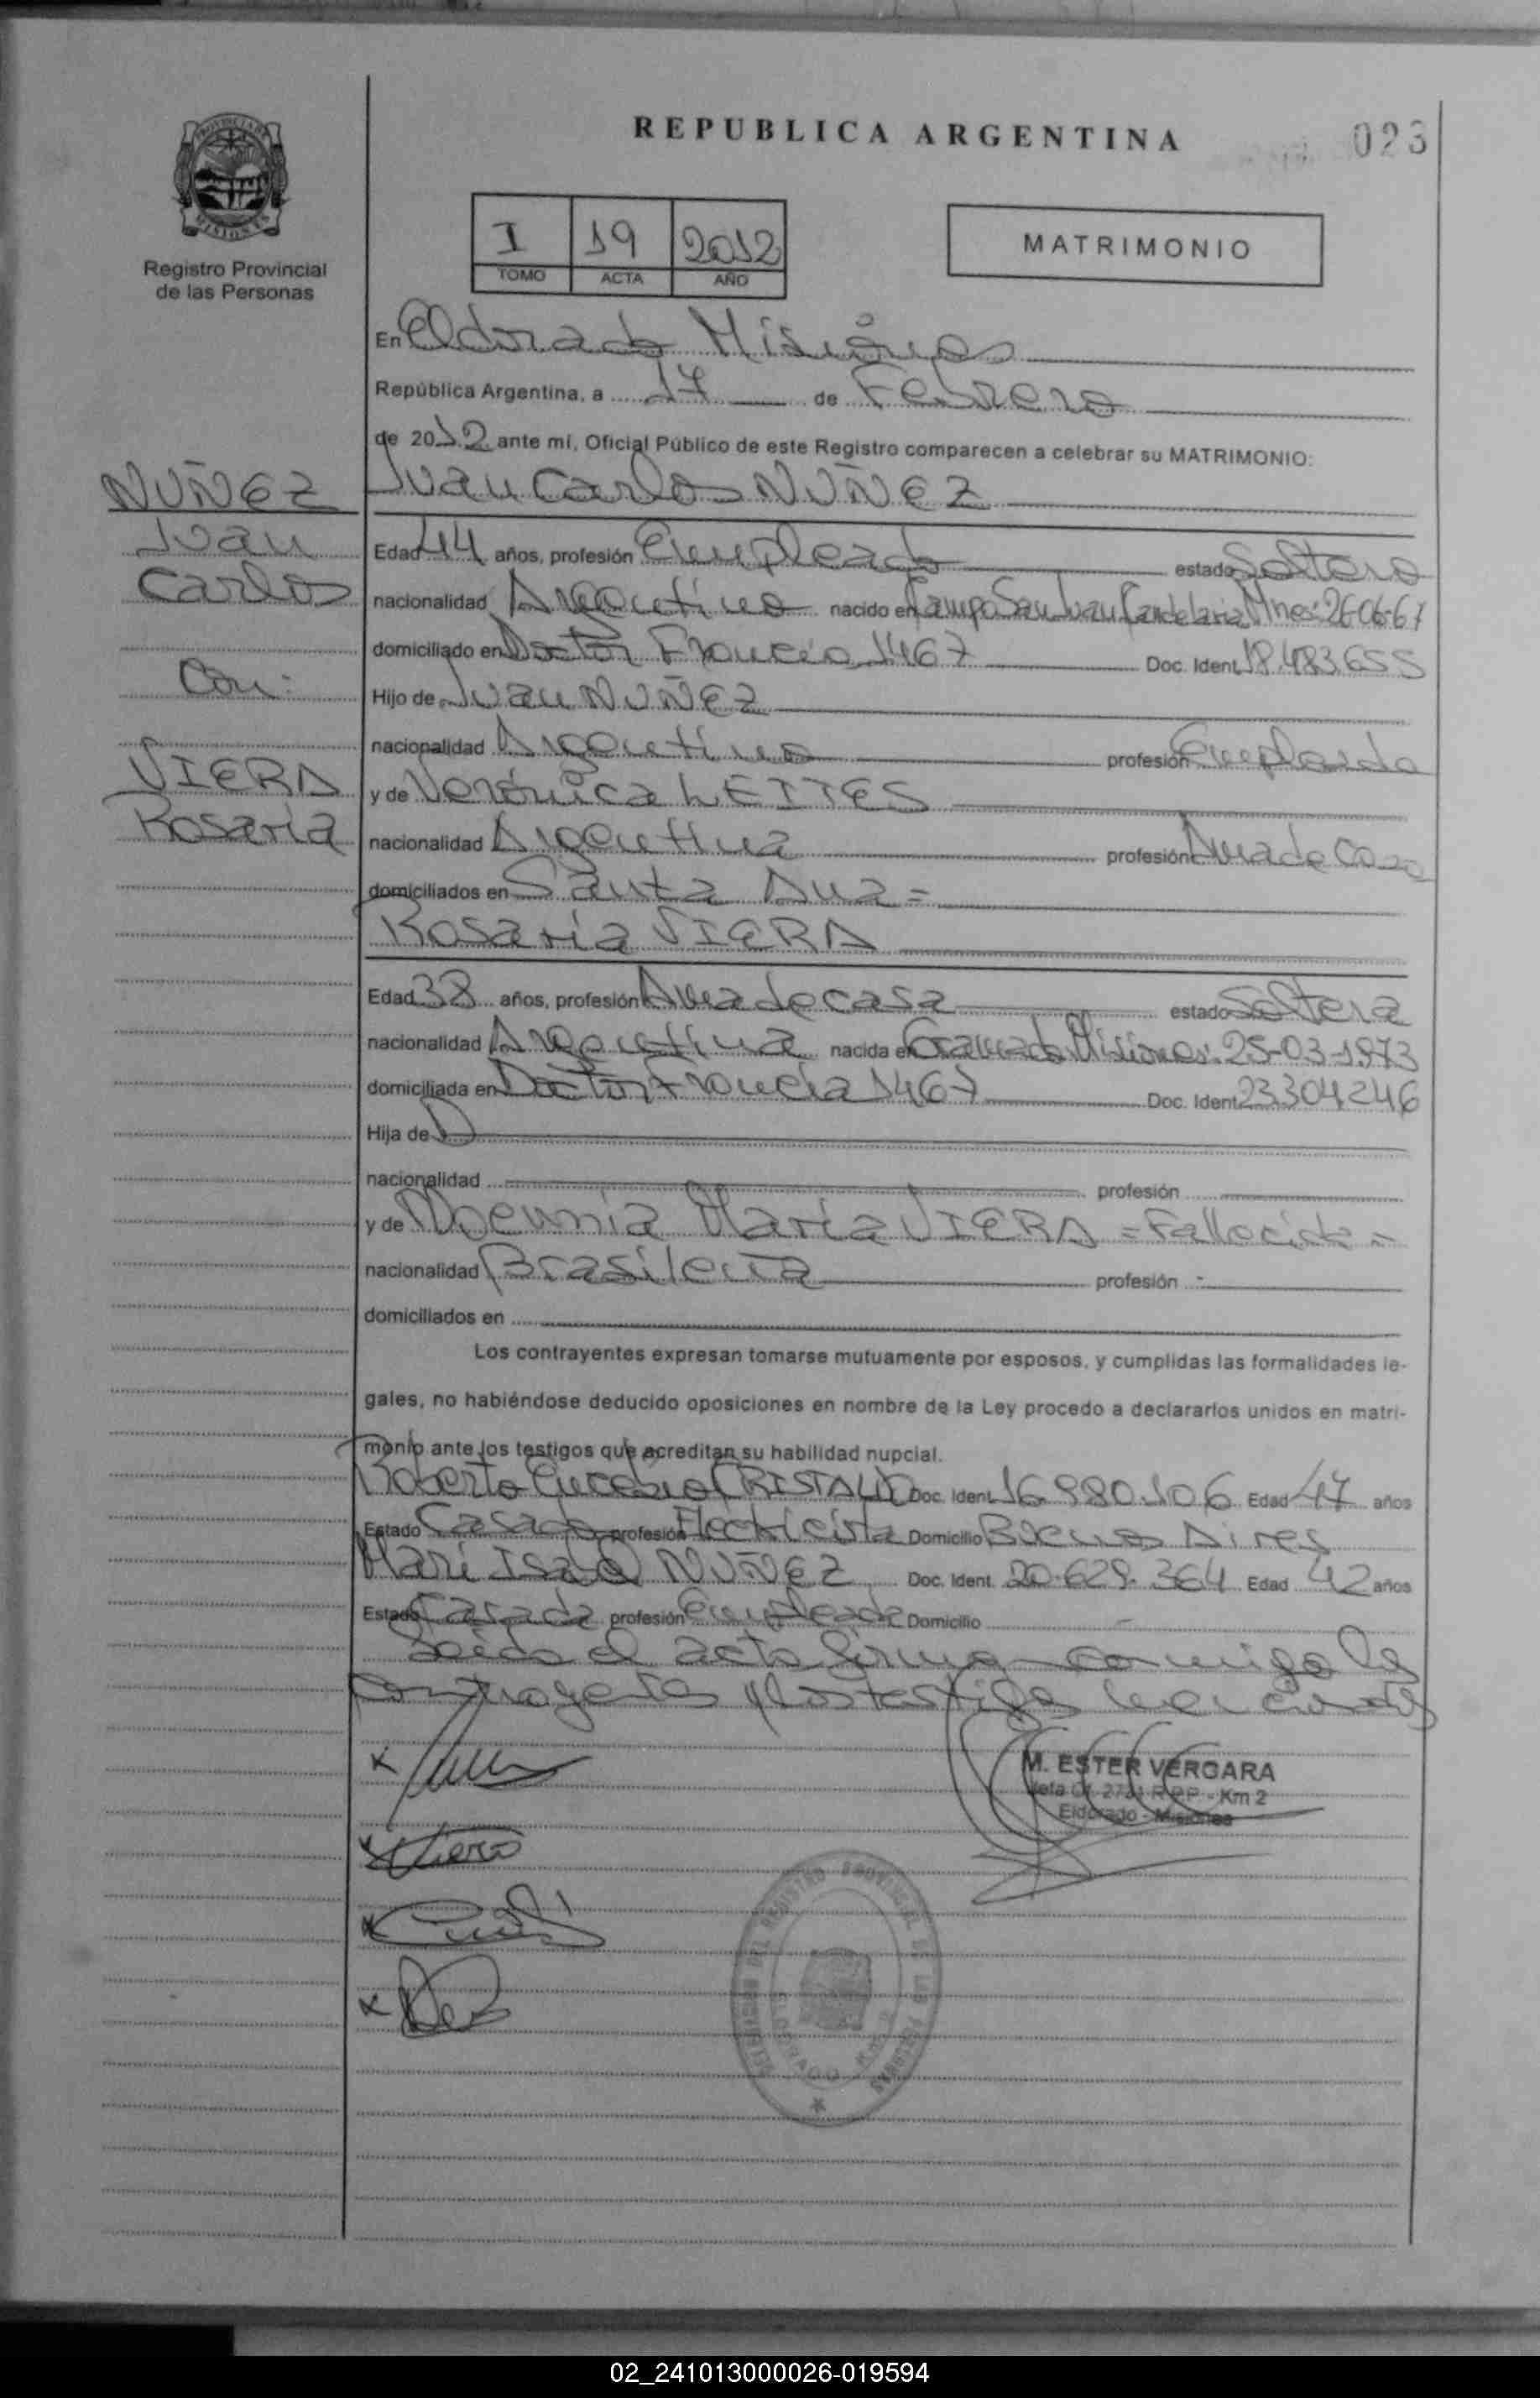 REPUBLICA ARGENTINA
023
PROVINCIA DE
MISIONES
Registro Provincial
de las Personas
I 19 2012
TOMO ACTA AÑO
MATRIMONIO
En Eldorado Misiones
República Argentina, a 17 de Febrero
de 2012 ante mí, Oficial Público de este Registro comparecen a celebrar su MATRIMONIO:
NUÑEZ
Juan
Carlos
Con:
VIERA
Rosaria
Juan Carlos NUÑEZ
Edad 44 años, profesión Empleado estado Soltero
nacionalidad Argentino nacido en Campo San Juan Candelaria Mnes: 26-06-67
domiciliado en Doctor Francia 1467 Doc. Ident. 18.483.655
Hijo de Juan NUÑEZ
nacionalidad Argentino profesión Empleado
y de Verónica LEITES
nacionalidad Argentina profesión Ama de Casa
domiciliados en Santa Ana =
Rosaria VIERA
Edad 38 años, profesión Ama de casa estado Soltera
nacionalidad Argentina nacida en Gramado Misiones: 25-03-1973
domiciliada en Doctor Francia 1467 Doc. Ident. 23304246
Hija de
nacionalidad profesión
y de Noemnia María VIERA = Fallecida =
nacionalidad Brasileña profesión -
domiciliados en
Los contrayentes expresan tomarse mutuamente por esposos, y cumplidas las formalidades le-
gales, no habiéndose deducido oposiciones en nombre de la Ley procedo a declararlos unidos en matri-
monio ante los testigos que acreditan su habilidad nupcial.
Roberto CRISTALDO Doc. Ident. 16.980.106 Edad 47 años
Estado Casado profesión Electricista Domicilio Buenos Aires
Mari Isabel NUÑEZ Doc. Ident. 20.629.364 Edad 42 años
Estado Casada profesión Empleada Domicilio -
Leída el acta firman conmigo los
contrayentes y los testigos
M. ESTER VERGARA
Jefa Of. 2721 R.P.P - Km 2
Eldorado - Misiones
ELDORADO
02_241013000026-019594